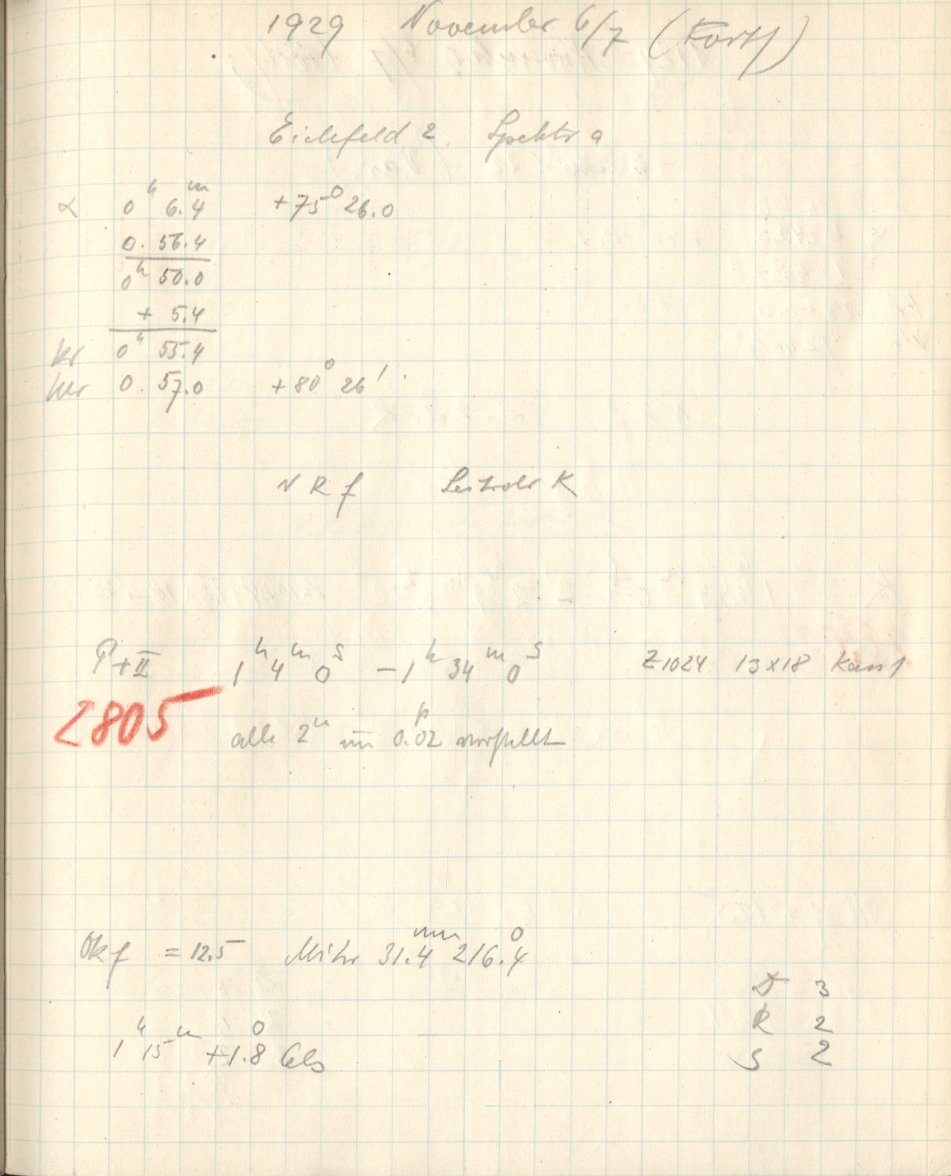 1929 November 6/7 (Fortf)
Eichfeld 2. Spektra
α 0ʰ 6.4ᵐ +75° 26.0
0. 56.4
0ʰ 50.0
+ 5.4
kr 0ʰ 55.4
0. 57.0 +80° 26'
N R f Leitrohr K
P+II 1ʰ 4ᵐ 0ˢ – 1ʰ 34ᵐ 0ˢ Z1024 13x18 Kass 1
2805 alle 2ᵐ um 0.02 verstellt
Okf = 12.5 Mikr 31.4ᵐᵐ 216.4°
D 3
R 2
1ʰ 15ᵐ +1.8° Cels
S 2